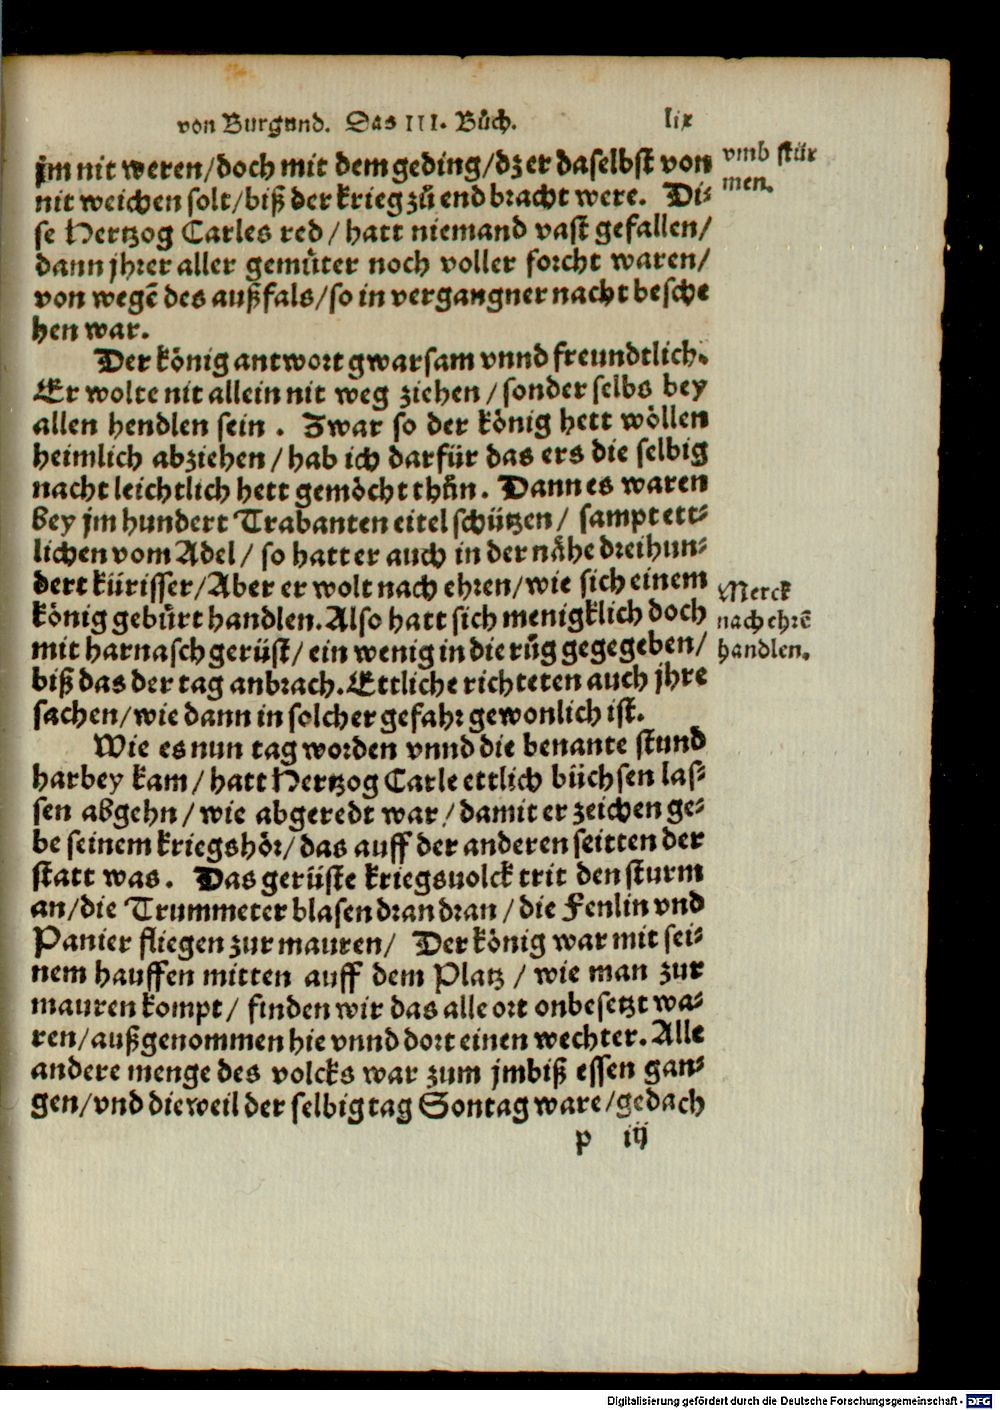 von Burgund. Das III. Bůch. lix
jm nit weren/doch mit dem geding/dz er daselbst von
nit weichen solt/biß der krieg zů end bracht were. Di-
se Hertzog Carles red/hatt niemand vast gefallen/
dann jhrer aller gemůter noch voller forcht waren/
von wegē des außfals/so in vergangner nacht besche
hen war.
vmb stür
men.
Der kőnig antwort gwarsam vnnd freundtlich.
Er wolte nit allein nit weg ziehen/sonder selbs bey
allen hendlen sein. Zwar so der kőnig hett wőllen
heimlich abziehen/hab ich darfür das ers die selbig
nacht leichtlich hett gemőcht thůn. Dann es waren
bey jm hundert Trabanten eitel schützen/ sampt ett-
lichen vom Adel/ so hatt er auch in der nåhe dreihun-
dert kürisser/Aber er wolt nach ehren/wie sich einem
kőnig gebürt handlen. Also hatt sich menigklich doch
mit harnasch gerüst/ein wenig in die růg gegegeben/
biß das der tag anbrach. Ettliche richteten auch jhre
sachen/wie dann in solcher gefahr gewonlich ist.
Merck
nach ehrē
handlen.
Wie es nun tag worden vnnd die benante stund
harbey kam/hatt Hertzog Carle ettlich büchsen las-
sen abgehn/wie abgeredt war/damit er zeichen ge-
be seinem kriegshőr/das auff der anderen seitten der
statt was. Das gerüste kriegsuolck trit den sturm
an/die Trummeter blasen dran dran/die Fenlin vnd
Panier fliegen zur mauren/ Der kőnig war mit sei-
nem hauffen mitten auff dem Platz/wie man zur
mauren kompt/ finden wir das alle ort onbesetzt wa-
ren/außgenommen hie vnnd dort einen wechter. Alle
andere menge des volcks war zum jmbiß essen gan-
gen/vnd dieweil der selbig tag Sontag ware/gedach
p iij
Digitalisierung gefördert durch die Deutsche Forschungsgemeinschaft - DFG